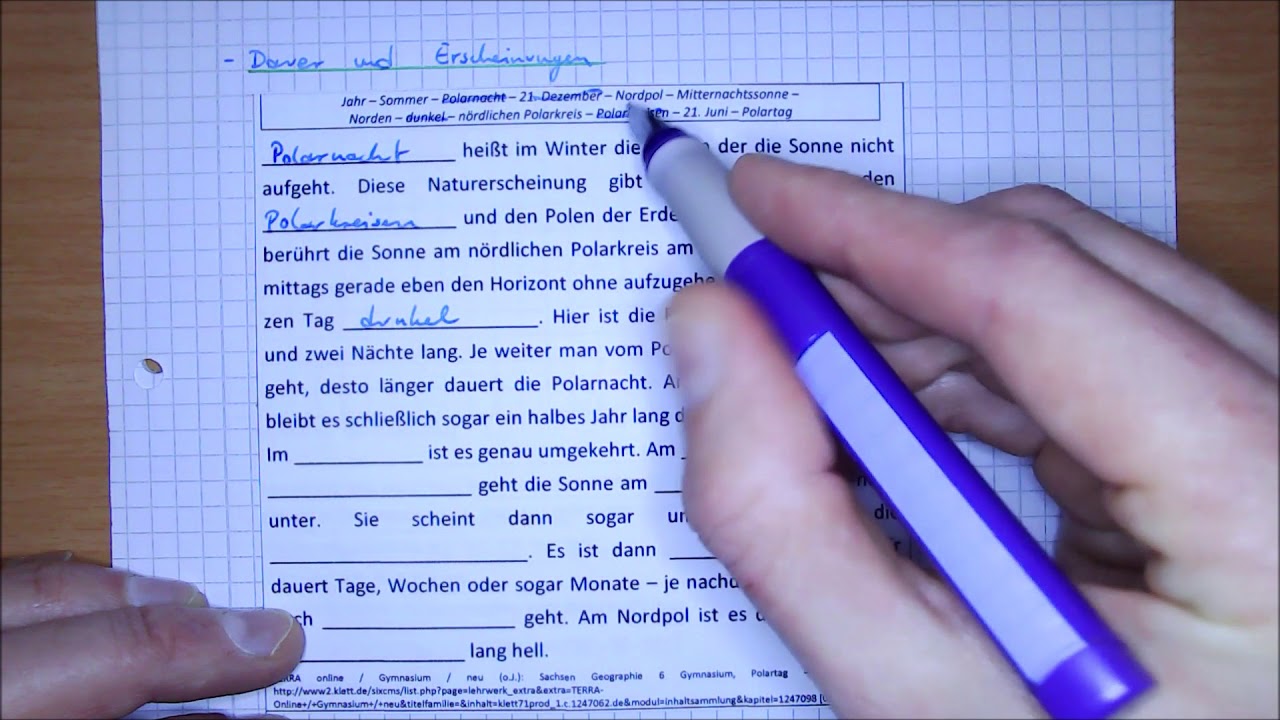 - Dauer und Erscheinungen
Jahr – Sommer – Polarnacht – 21. Dezember – Nordpol – Mitternachtssonne –
Norden – dunkel – nördlichen Polarkreis – – 21. Juni – Polartag
Polarnacht heißt im Winter die der die Sonne nicht
aufgeht. Diese Naturerscheinung gibt den
Polarkreisen und den Polen der Erde
berührt die Sonne am nördlichen Polarkreis am
mittags gerade eben den Horizont ohne aufzugehe
zen Tag dunkel. Hier ist die
und zwei Nächte lang. Je weiter man vom
geht, desto länger dauert die Polarnacht.
bleibt es schließlich sogar ein halbes Jahr lang
Im ____________ ist es genau umgekehrt. Am
____________ geht die Sonne am ____
unter. Sie scheint dann sogar die
____________. Es ist dann ____
dauert Tage, Wochen oder sogar Monate – je
____________ geht. Am Nordpol ist es
____________ lang hell.
online / Gymnasium / neu (o.J.): Sachsen Geographie 6 Gymnasium, Polartag –
http://www2.klett.de/sixcms/list.php?page=lehrwerk_extra&extra=TERRA-
Online+/+Gymnasium+/+neu&titelfamilie=&inhalt=klett71prod_1.c.1247062.de&modul=inhaltsammlung&kapitel=1247098